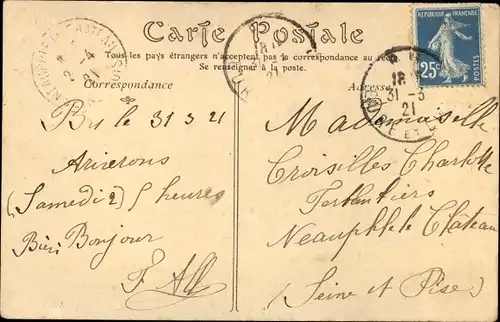 Carte Postale
Tous les pays étrangers n'acceptent pas la correspondance au recto
Se renseigner à la poste.
Correspondance
Adresse
RÉPUBLIQUE FRANÇAISE
25c
POSTES
18
31-3
21
le 31 3 21
Ariverons
(Samedi 2) 5 heures
Bien Bonjour
Mademoiselle
Croisilles Charlotte
Neauphle le Château
(Seine et Oise)